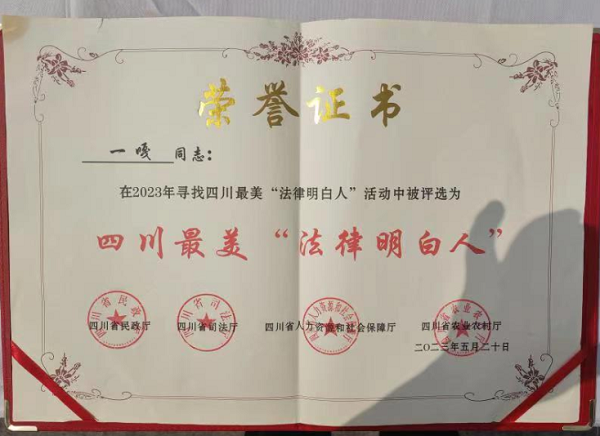 荣誉证书
一嘎 同志：
在2023年寻找四川最美“法律明白人”活动中被评选为
四川最美“法律明白人”
四川省民政厅 四川省司法厅 四川省人力资源和社会保障厅 四川省农业农村厅
二〇二三年五月二十日